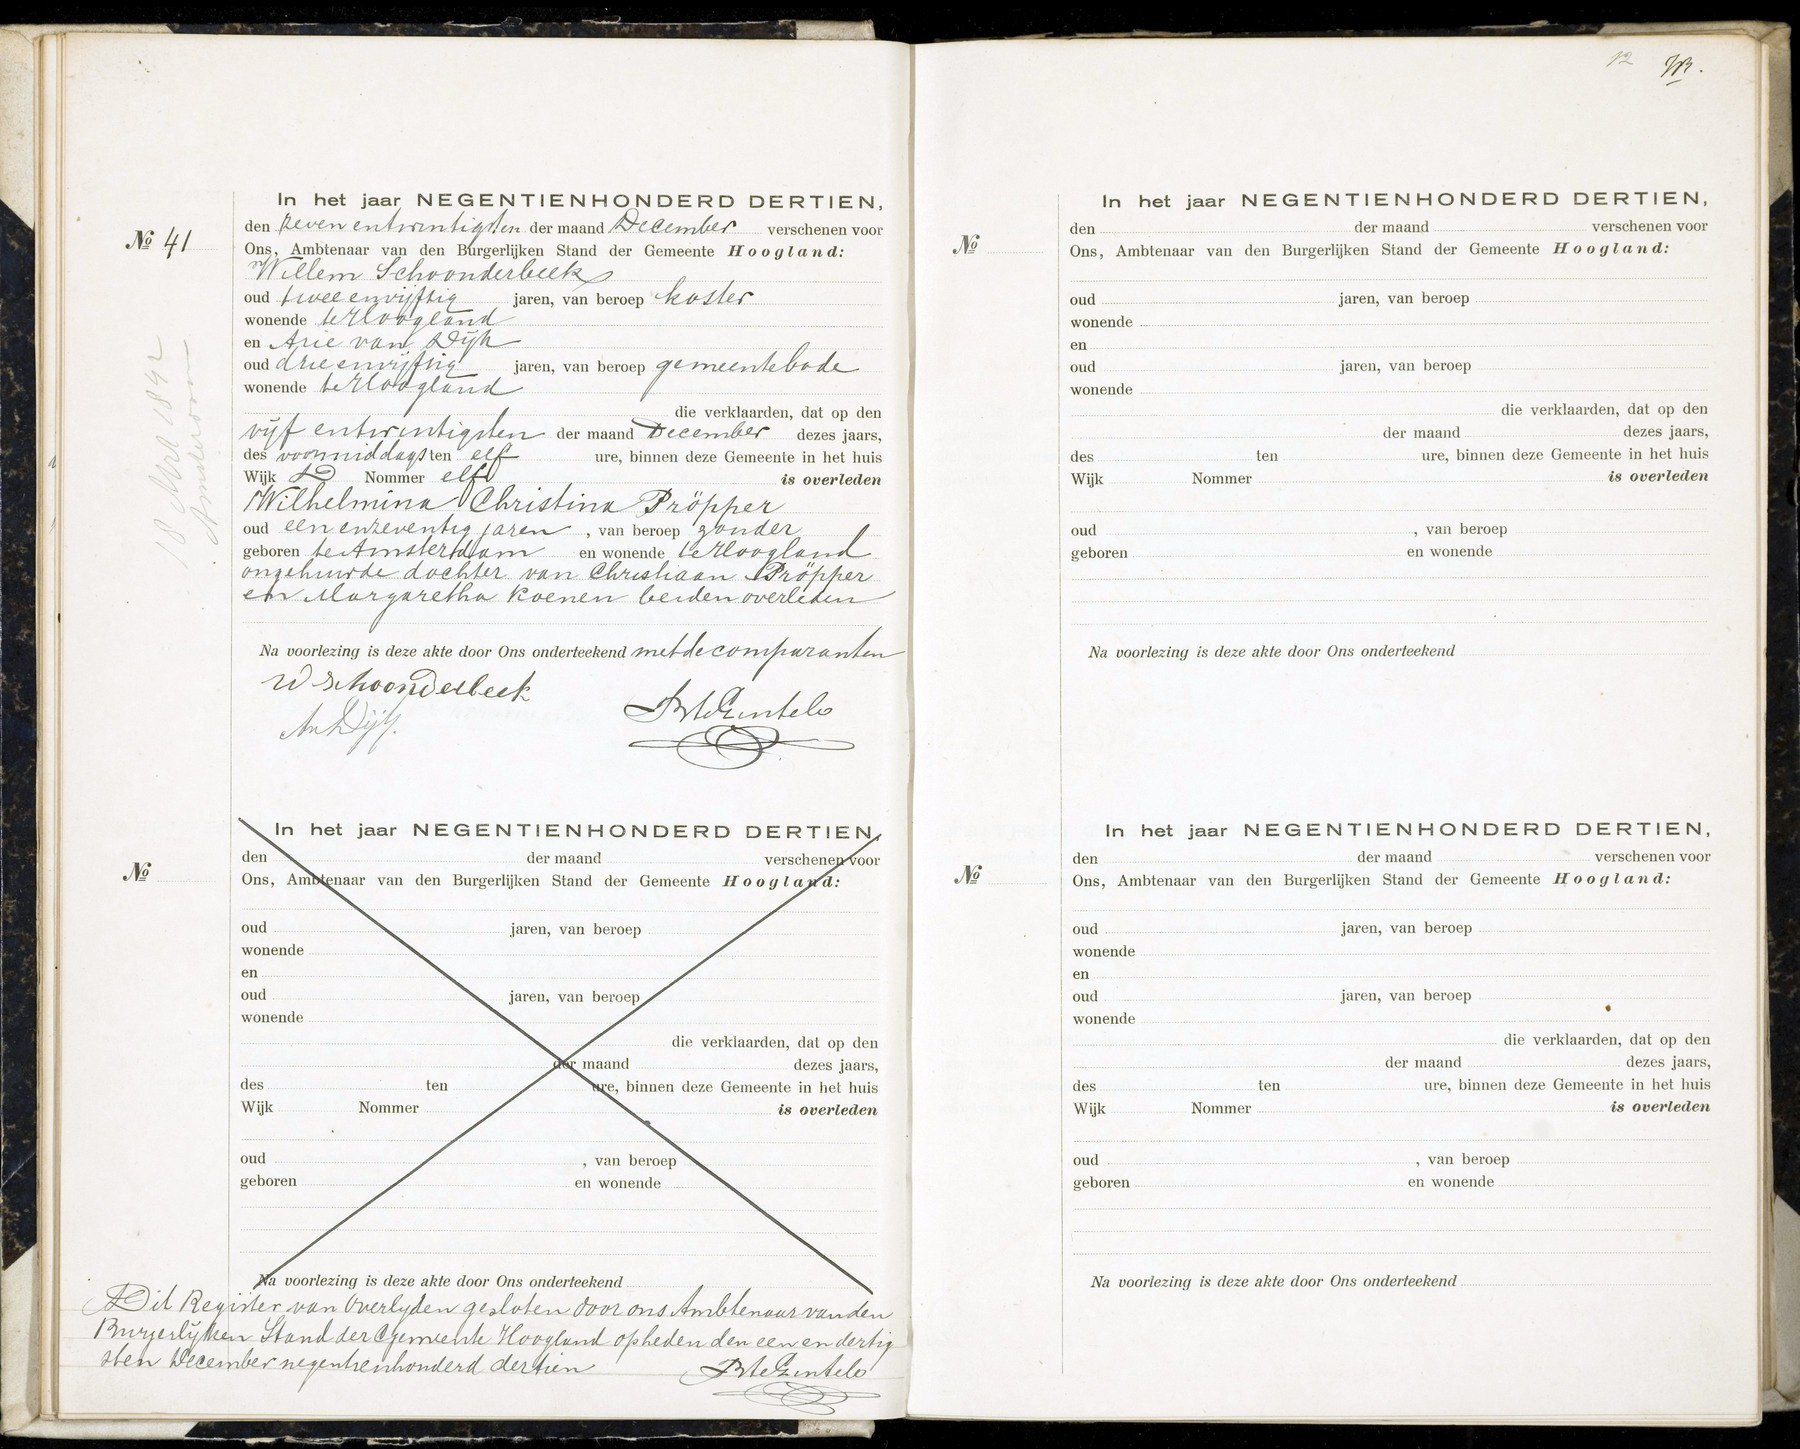 In het jaar NEGENTIENHONDERD DERTIEN,
No 41
den zeven entwintigsten der maand December verschenen voor
Ons, Ambtenaar van den Burgerlijken Stand der Gemeente Hoogland:
Willem Schoonderbeek
oud twee envijftig jaren, van beroep koster
wonende te Hoogland
en Arie van Dijk
oud drie envijftig jaren, van beroep gemeentebode
wonende te Hoogland
die verklaarden, dat op den
vijf entwintigsten der maand December dezes jaars,
des voormiddags ten elf ure, binnen deze Gemeente in het huis
Wijk D Nommer elf is overleden
Wilhelmina Christina Pröpper
oud een enzeventig jaren, van beroep zonder
geboren te Amsterdam en wonende te Hoogland
ongehuwde dochter van Christiaan Pröpper
en Margaretha Koenen beiden overleden
Na voorlezing is deze akte door Ons onderteekend met de comparanten
W Schoonderbeek
AvDijk.
18 Mrt 1842
Amsterdam
In het jaar NEGENTIENHONDERD DERTIEN,
No
den der maand verschenen voor
Ons, Ambtenaar van den Burgerlijken Stand der Gemeente Hoogland:
oud jaren, van beroep
wonende
en
oud jaren, van beroep
wonende
die verklaarden, dat op den
der maand dezes jaars,
des ten ure, binnen deze Gemeente in het huis
Wijk Nommer is overleden
oud , van beroep
geboren en wonende
Na voorlezing is deze akte door Ons onderteekend
Dit Register van Overlijden gesloten door ons Ambtenaar van den
Burgerlijken Stand der Gemeente Hoogland op heden den een en dertig
sten December negentienhonderd dertien
12
In het jaar NEGENTIENHONDERD DERTIEN,
No
den der maand verschenen voor
Ons, Ambtenaar van den Burgerlijken Stand der Gemeente Hoogland:
oud jaren, van beroep
wonende
en
oud jaren, van beroep
wonende
die verklaarden, dat op den
der maand dezes jaars,
des ten ure, binnen deze Gemeente in het huis
Wijk Nommer is overleden
oud , van beroep
geboren en wonende
Na voorlezing is deze akte door Ons onderteekend
In het jaar NEGENTIENHONDERD DERTIEN,
No
den der maand verschenen voor
Ons, Ambtenaar van den Burgerlijken Stand der Gemeente Hoogland:
oud jaren, van beroep
wonende
en
oud jaren, van beroep
wonende
die verklaarden, dat op den
der maand dezes jaars,
des ten ure, binnen deze Gemeente in het huis
Wijk Nommer is overleden
oud , van beroep
geboren en wonende
Na voorlezing is deze akte door Ons onderteekend